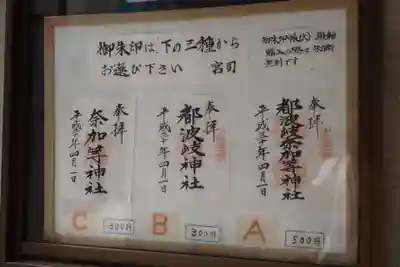 御朱印は、下の三種から
お選び下さい　宮司
無料です
奉拝
都波岐奈加等神社
平成三十年四月一日
奉拝
都波岐神社
平成三十年四月一日
奉拝
奈加等神社
平成三十年四月一日
A
500円
B
300円
C
300円